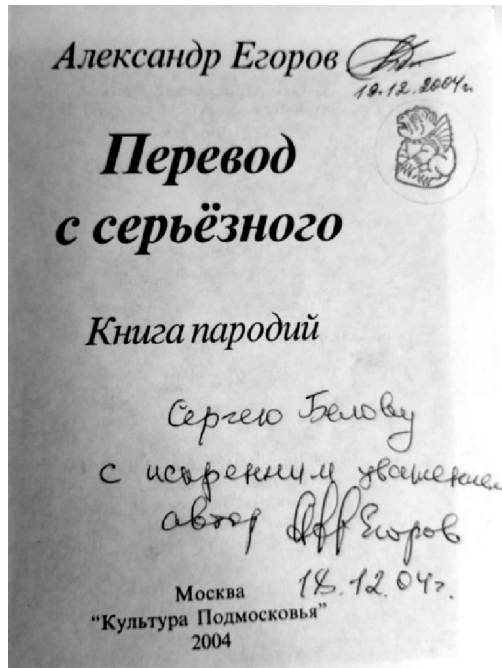 Александр Егоров
18.12.2004г.
Перевод
с серьёзного
Книга пародий
Сергею Белову
с искренним уважением
автор Егоров
18.12.04г.
Москва
"Культура Подмосковья"
2004